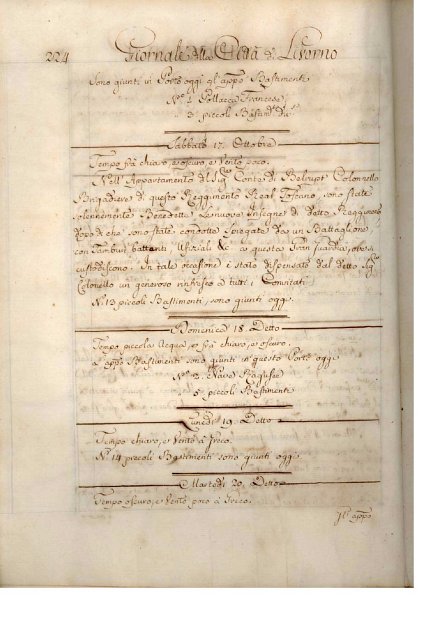 224 Giornale della Città di Livorno
Sono giunti in Porto oggi gl'appo Bastimenti
N.o 1 Pollacca Francese
3 piccoli Bastim.ti
Sabbato 17. Ottobre
Tempo frà chiaro, e oscuro, e Vento poco.
Nell'Appartamento del Sig.r Conte di Colonnello
Brigadiere di questo Reggimento Real Toscano, sono state
solennemente Benedette Le nuove Insegne di detto Reggimento
dopo di che sono state condotte spiegate da un Battaglione,
con Tamburi battenti Ufiziali &c a questa Gran Guardia, ove si
custodiscono. In tale occasione è stato dispensato dal detto Sig.r
Colonello un generoso rinfresco a tutti i Convitati
N. 13 piccoli Bastimenti, sono giunti oggi
Domenica 18. Detto
Tempo piccola Acqua, e frà chiaro, e oscuro.
L'appo Bastimenti sono giunti in questo Porto oggi
Nave
5 piccoli Bastimenti
Lunedì 19. Detto
Tempo chiaro, e Vento à Greco.
N. 14 piccoli Bastimenti sono giunti oggi
Martedì 20. Detto
Tempo oscuro, e Vento poco à Greco.
appo